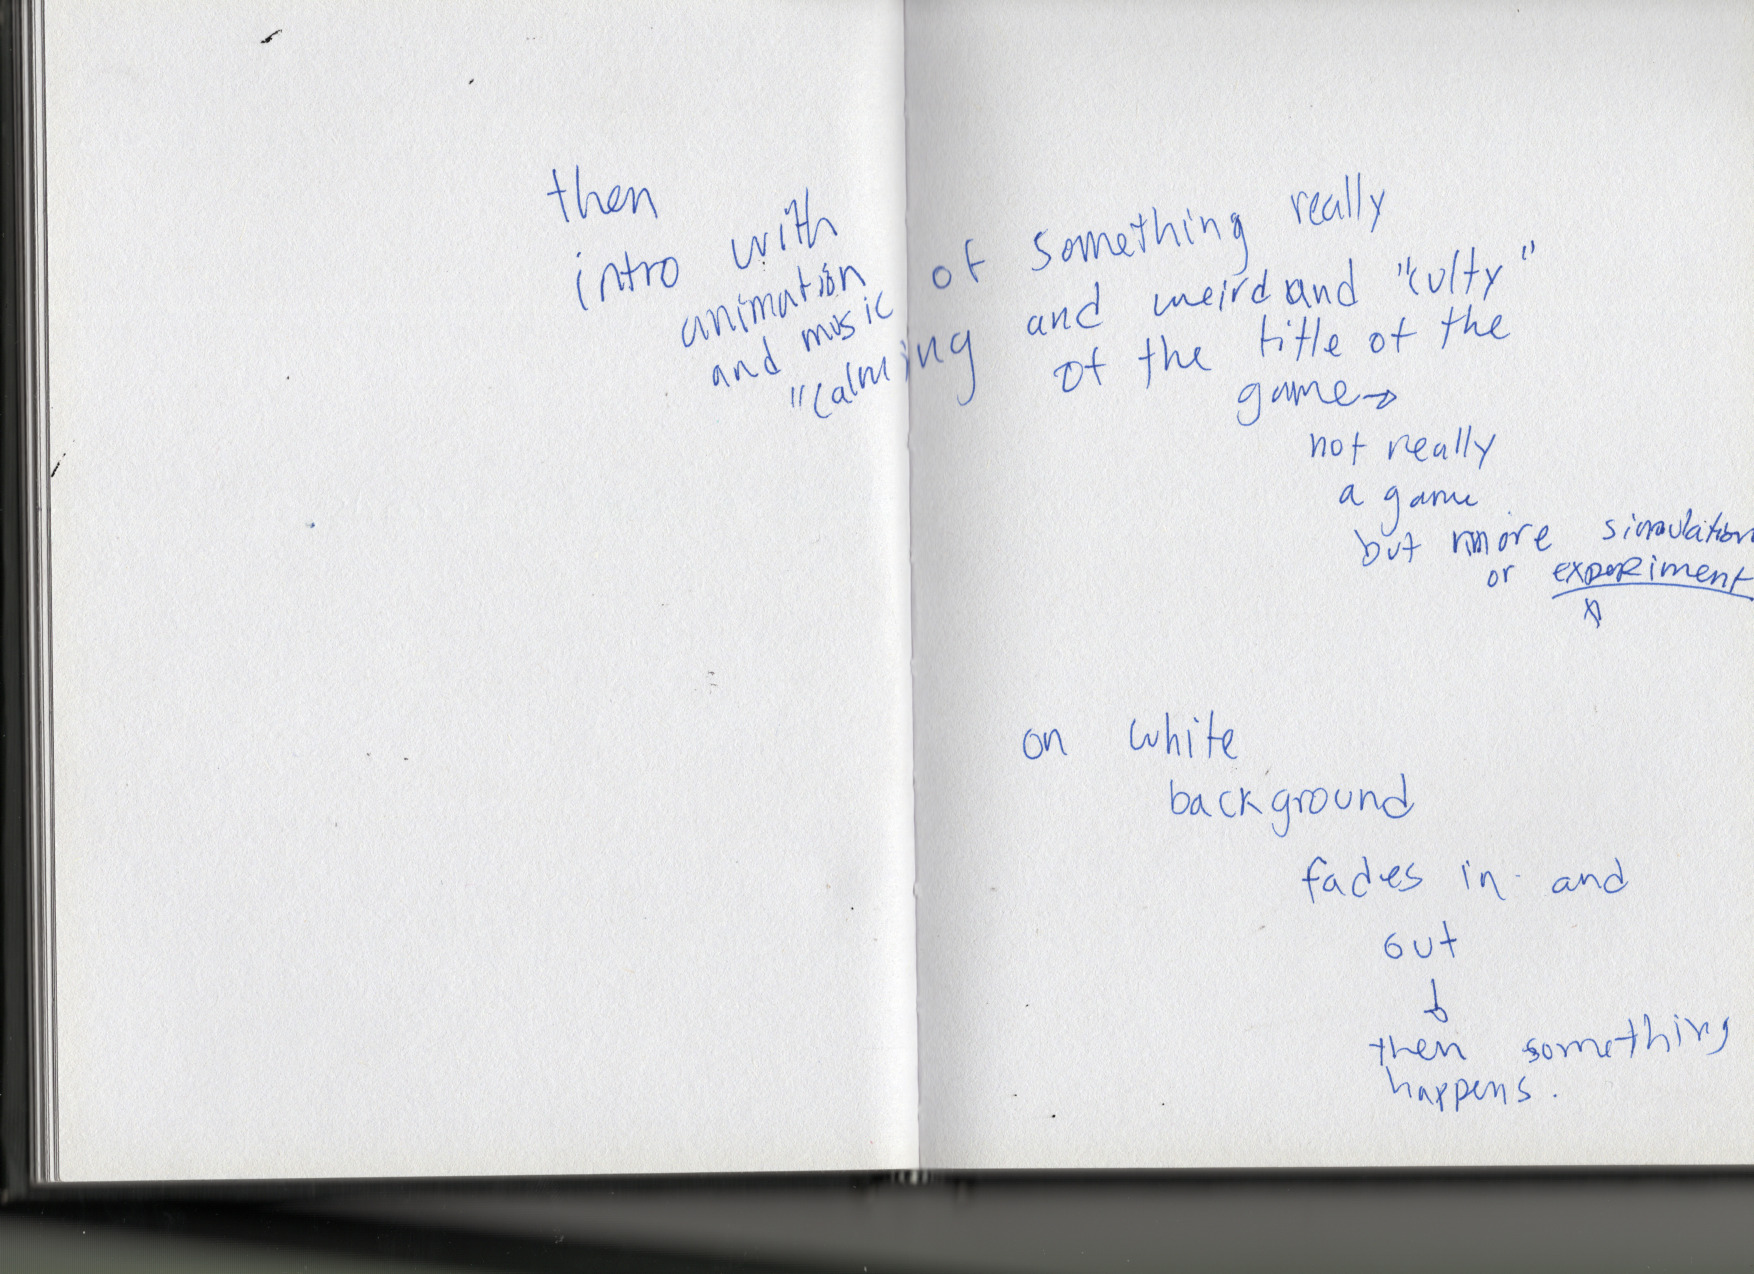 then
intro with
animation
and music of something really
"calming and weird and "culty"
of the title of the
game→
not really
a game
but more simulation
or experiment
on white
background
fades in and
out
↓
then something
happens.